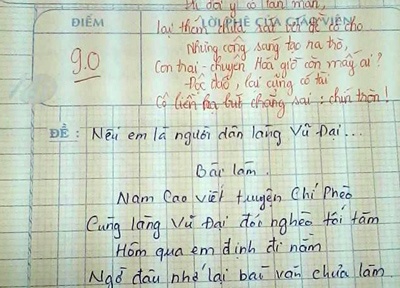 ý có lan man,
ĐIỂM
LỜI PHÊ CỦA GIÁO VIÊN
lại thêm chữa sai
cho
9.0
Nhưng công sáng tạo ra thơ,
Con trai - chuyên Hoá giờ còn mấy ai?
Độc đáo, lại cũng có tài
Cô liền hạ bút chẳng sai: chín tròn!
ĐỀ: Nếu em là người dân làng Vũ Đại...
Bài làm.
Nam Cao viết truyện Chí Phèo
Cũng làng Vũ Đại đói nghèo tối tăm
Hôm qua em định đi nằm
Ngờ đâu nhớ lại bài văn chưa làm.